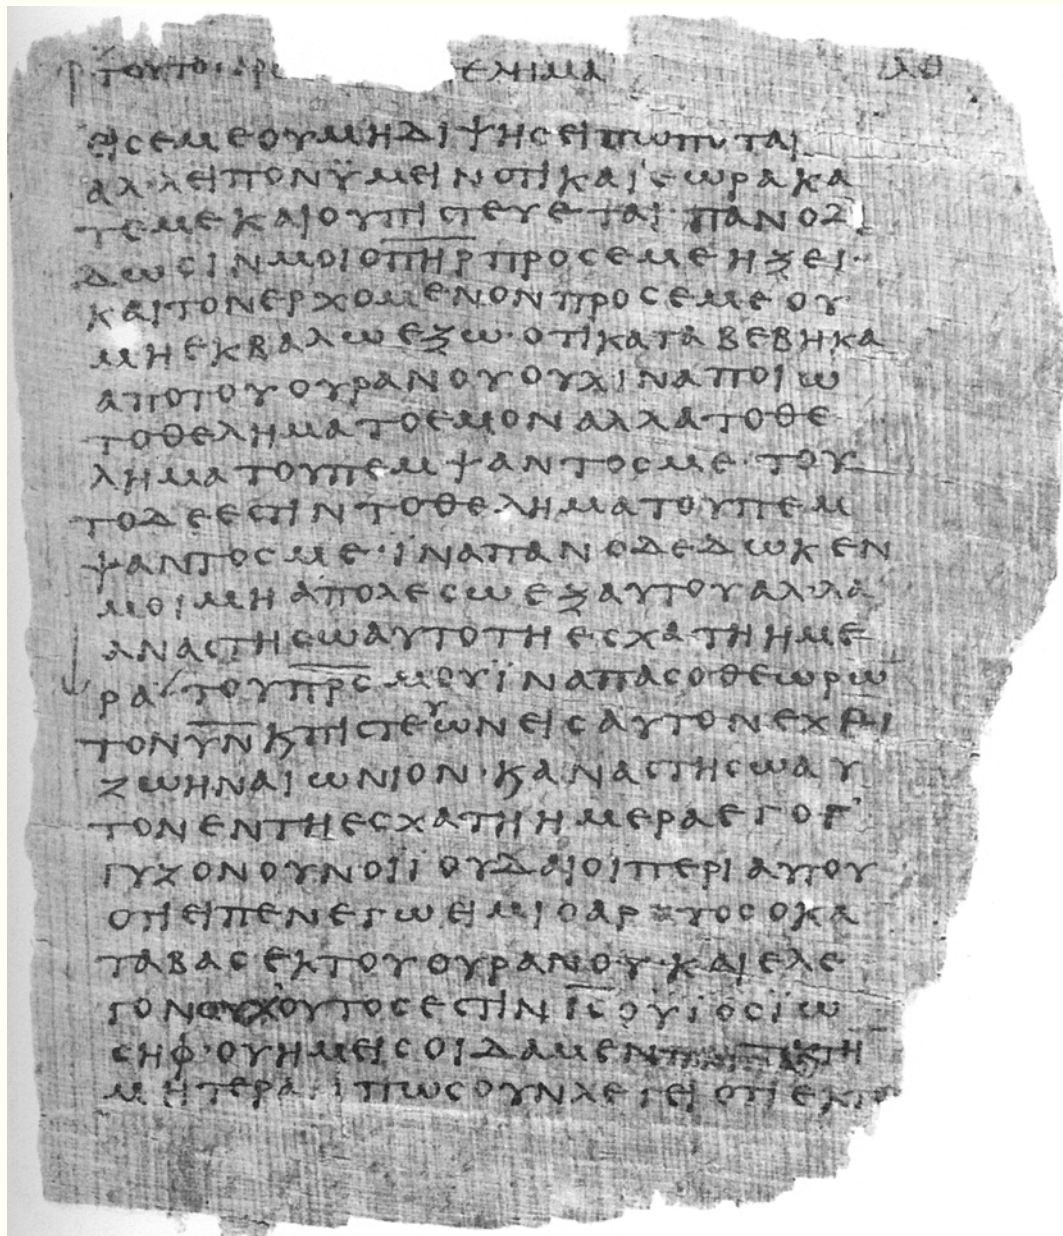 ΤΟΥΤΟ ΑΡ ΕΛΗΜΑ ΛΘ
ΕΙϹΕΜΕΟΥΜΗΔΙΨΗϹΕΙΠΩΠΟΤΑΙ
ΑΛΛΕΙΠΟΝΫΜΕΙΝΟΤΙΚΑΙΕΩΡΑΚΑ
ΤΕΜΕΚΑΙΟΥΠΙϹΤΕΥΕΤΑΙ·ΠΑΝΟΔΙ
ΔΩϹΙΝΜΟΙΟΠ̅Η̅Ρ̅ΠΡΟϹΕΜΕΗΞΕΙ·
ΚΑΙΤΟΝΕΡΧΟΜΕΝΟΝΠΡΟϹΕΜΕΟΥ
ΜΗΕΚΒΑΛΩΕΞΩ·ΟΤΙΚΑΤΑΒΕΒΗΚΑ
ΑΠΟΤΟΥΟΥΡΑΝΟΥΟΥΧΙΝΑΠΟΙΩ
ΤΟΘΕΛΗΜΑΤΟΕΜΟΝΑΛΛΑΤΟΘΕ
ΛΗΜΑΤΟΥΠΕΜΨΑΝΤΟϹΜΕ·ΤΟΥ
ΤΟΔΕΕϹΤΙΝΤΟΘΕΛΗΜΑΤΟΥΠΕΜ
ΨΑΝΤΟϹΜΕ·ΪΝΑΠΑΝΟΔΕΔΩΚΕΝ
ΜΟΙΜΗΑΠΟΛΕϹΩΕΞΑΥΤΟΥΑΛΛΑ
ΑΝΑϹΤΗϹΩΑΥΤΟΤΗΕϹΧΑΤΗΗΜΕ
ΡΑ⸍ΤΟΥΠ̅Ρ̅Ϲ̅ΜΟΥΪΝΑΠΑϹΟΘΕΩΡΩ
ΤΟΝΥ̅Ν̅ϗΠΙϹΤΕΥΩΝΕΙϹΑΥΤΟΝΕΧΕΙ
ΖΩΗΝΑΙΩΝΙΟΝ·ϗΑΝΑϹΤΗϹΩΑΥ
ΤΟΝΕΝΤΗΕϹΧΑΤΗΗΜΕΡΑΕΓΟΓ᾽
ΓΥΖΟΝΟΥΝΟΙΙΟΥΔΑΙΟΙΠΕΡΙΑΥΤΟΥ
ΟΤΙΕΙΠΕΝΕΓΩΕΙΜΙΟΑΡΤΟϹΟΚΑ
ΤΑΒΑϹΕΚΤΟΥΟΥΡΑΝΟΥ·ΚΑΙΕΛΕ
ΓΟΝΟΥΧΟΥΤΟϹΕϹΤΙΝΙ̅Ϲ̅ΟΫΙΟϹΪΩ
ϹΗΦ·ΟΥΗΜΕΙϹΟΙΔΑΜΕΝ
ΜΗΤΕΡΑ·ΠΩϹΟΥΝΛΕΓΕΙΟΤΙΕΚΤΟ